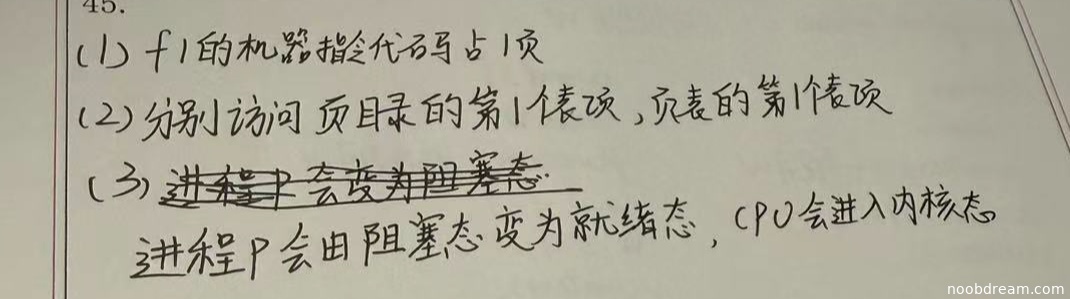 45.
(1) f1的机器指令代码占1页
(2) 分别访问页目录的第1个表项,页表的第1个表项
(3) 进程P会变为阻塞态.
进程P会由阻塞态变为就绪态,CPU会进入内核态
noobdream.com